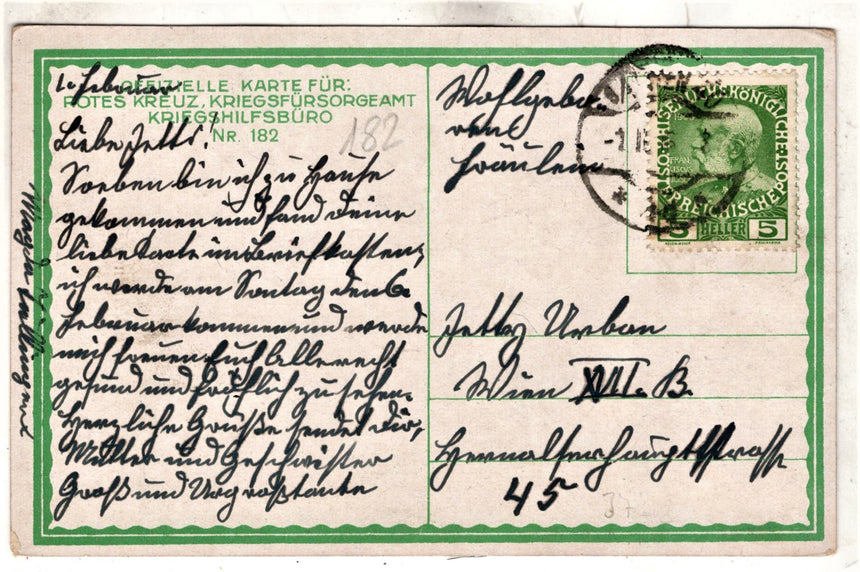 OFFIZIELLE KARTE FÜR:
ROTES KREUZ, KRIEGSFÜRSORGEAMT
KRIEGSHILFSBÜRO
NR. 182
182
1. Februar
Liebe Jetti!
Soeben bin ich zu Hause
gekommen und fand Deine
liebe Karte im Briefkasten,
ich werde am Sontag den 6.
Februar kommen und werde
mich freuen Euch Alle recht
gesund und fröhlich zu sehen.
Herzliche Grüße sendet Dir,
Mutter und Geschwister
Groß und Urgroßtante
Wohlgebo-
rene
Fräulein
Jetty Urban
Wien XVII. B.
Hernalserhauptstrasse
45
37
KAISERLICHE KÖNIGLICHE
ÖSTERREICHISCHE POST
5 HELLER 5